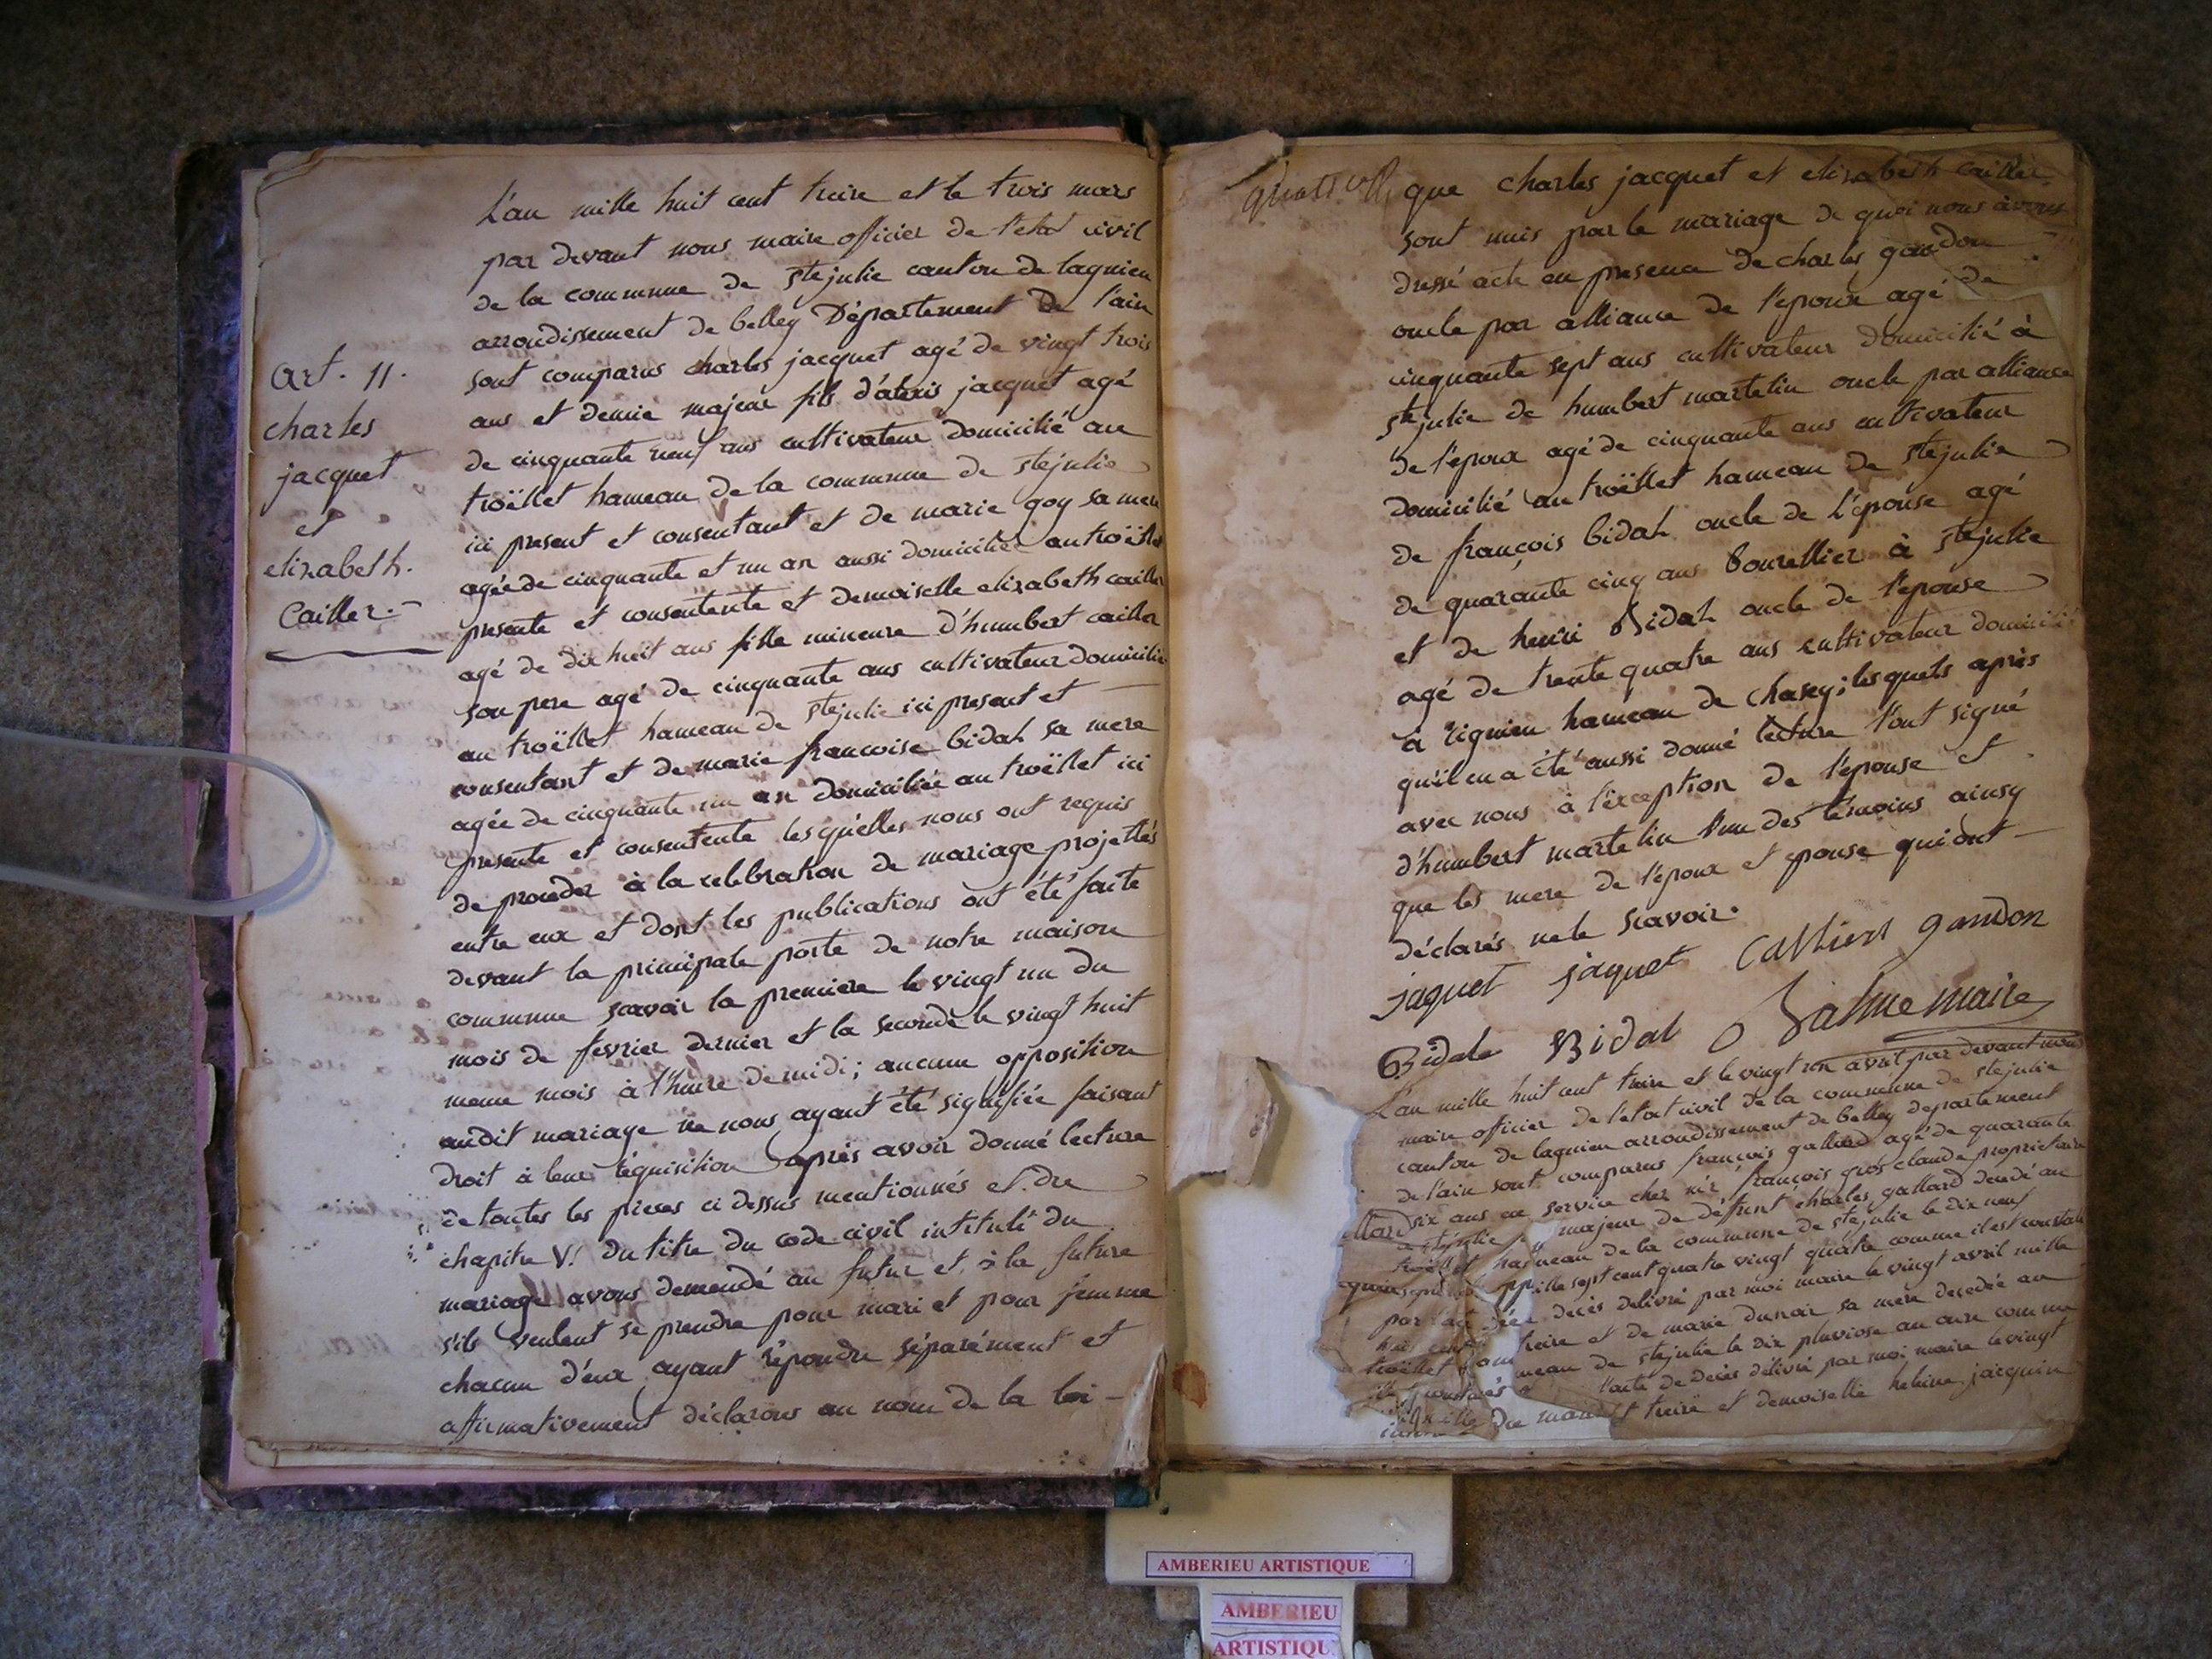 art. 11.
charles
jacquet
et
elizabeth.
Cailler.
L'an mille huit cent treize et le trois mars
par devant nous maire officier de l'etat civil
de la commune de stejulie canton de lagnieu
arrondissement de belley Département de l'ain
sont comparus charles jacquet agé de vingt trois
ans et demie majeur fils d'alexis jacquet agé
de cinquante neuf ans cultivateur domicilié au
troëllet hameau de la commune de stejulie
ici present et consentant et de marie goy sa mere
agée de cinquante et un an aussi domiciliée au troëllet
presente et consentente et demoiselle elizabeth cailler
agé de dix huit ans fille mineure d'humbert cailler
son pere agé de cinquante ans cultivateur domicilié
au troëllet hameau de stejulie ici present et
consentant et de marie francoise bidal sa mere
agée de cinquante un an domiciliée au troëllet ici
presente et consentente lesquelles nous ont requis
de proceder à la celebration de mariage projettés
entre eux et dont les publications ont été faite
devant la principale porte de notre maison
commune scavoir la premiere le vingt un du
mois de fevrier dernier et la seconde le vingt huit
meme mois à l'heure de midi; aucune opposition
audit mariage ne nous ayant été signifiée faisant
droit à leur réquisition après avoir donné lecture
de toutes les pieces ci dessus mentionnés et du
chapitre VI du titre du code civil intitulé du
mariage avons demandé au futur et à la future
s'ils veulent se prendre pour mari et pour femme
chacun d'eux ayant répondu séparément et
affirmativement déclarons au nom de la loi
que charles jacquet et elizabeth cailler
sont unis par le mariage de quoi nous avons
dressé acte en presence de charles gandon
oncle par alliance de l'epoux agé de
cinquante sept ans cultivateur domicilié à
stejulie de humbert martelin oncle par alliance
de l'epoux agé de cinquante ans cultivateur
domicilié au troëllet hameau de stejulie
de françois bidal oncle de l'épouse agé
de quarante cinq ans bourellier à stejulie
et de henri Bidal oncle de l'epouse
agé de trente quatre ans cultivateur domicilié
à rignieu hameau de chasey; lesquels après
qu'il en a été aussi donné lecture l'ont signé
avec nous à l'exception de l'épouse et
d'humbert martelin l'un des témoins ainsy
que les mere de l'époux et epouse qui ont
déclarés ne le scavoir.
jaquet jaquet Calliers gandon
Bidale Bidal Jalme maire
L'an mille huit cent treize et le vingt un avril par devant nous
maire officier de l'etat civil de la commune de stejulie
canton de lagnieu arrondissement de belley departement
de l'ain sont comparus françois gallard agé de quarante
six ans en service chez mr françois gros claude proprietaire
a stejulie majeur de deffunt charles gallard décédé au
troëllet hameau de la commune de stejulie le dix neuf
mille sept cent quatre vingt quatre comme il est constaté
par l'acte décès delivré par moi maire le vingt avril mille
huit cent treize et de marie sa mere decedée au
troëllet hameau de stejulie le dix pluviose an onze comme
l'acte de decès délivré par moi maire le vingt
du treize et demoiselle helene jacquin
AMBERIEU ARTISTIQUE
AMBERIEU
ARTISTIQU